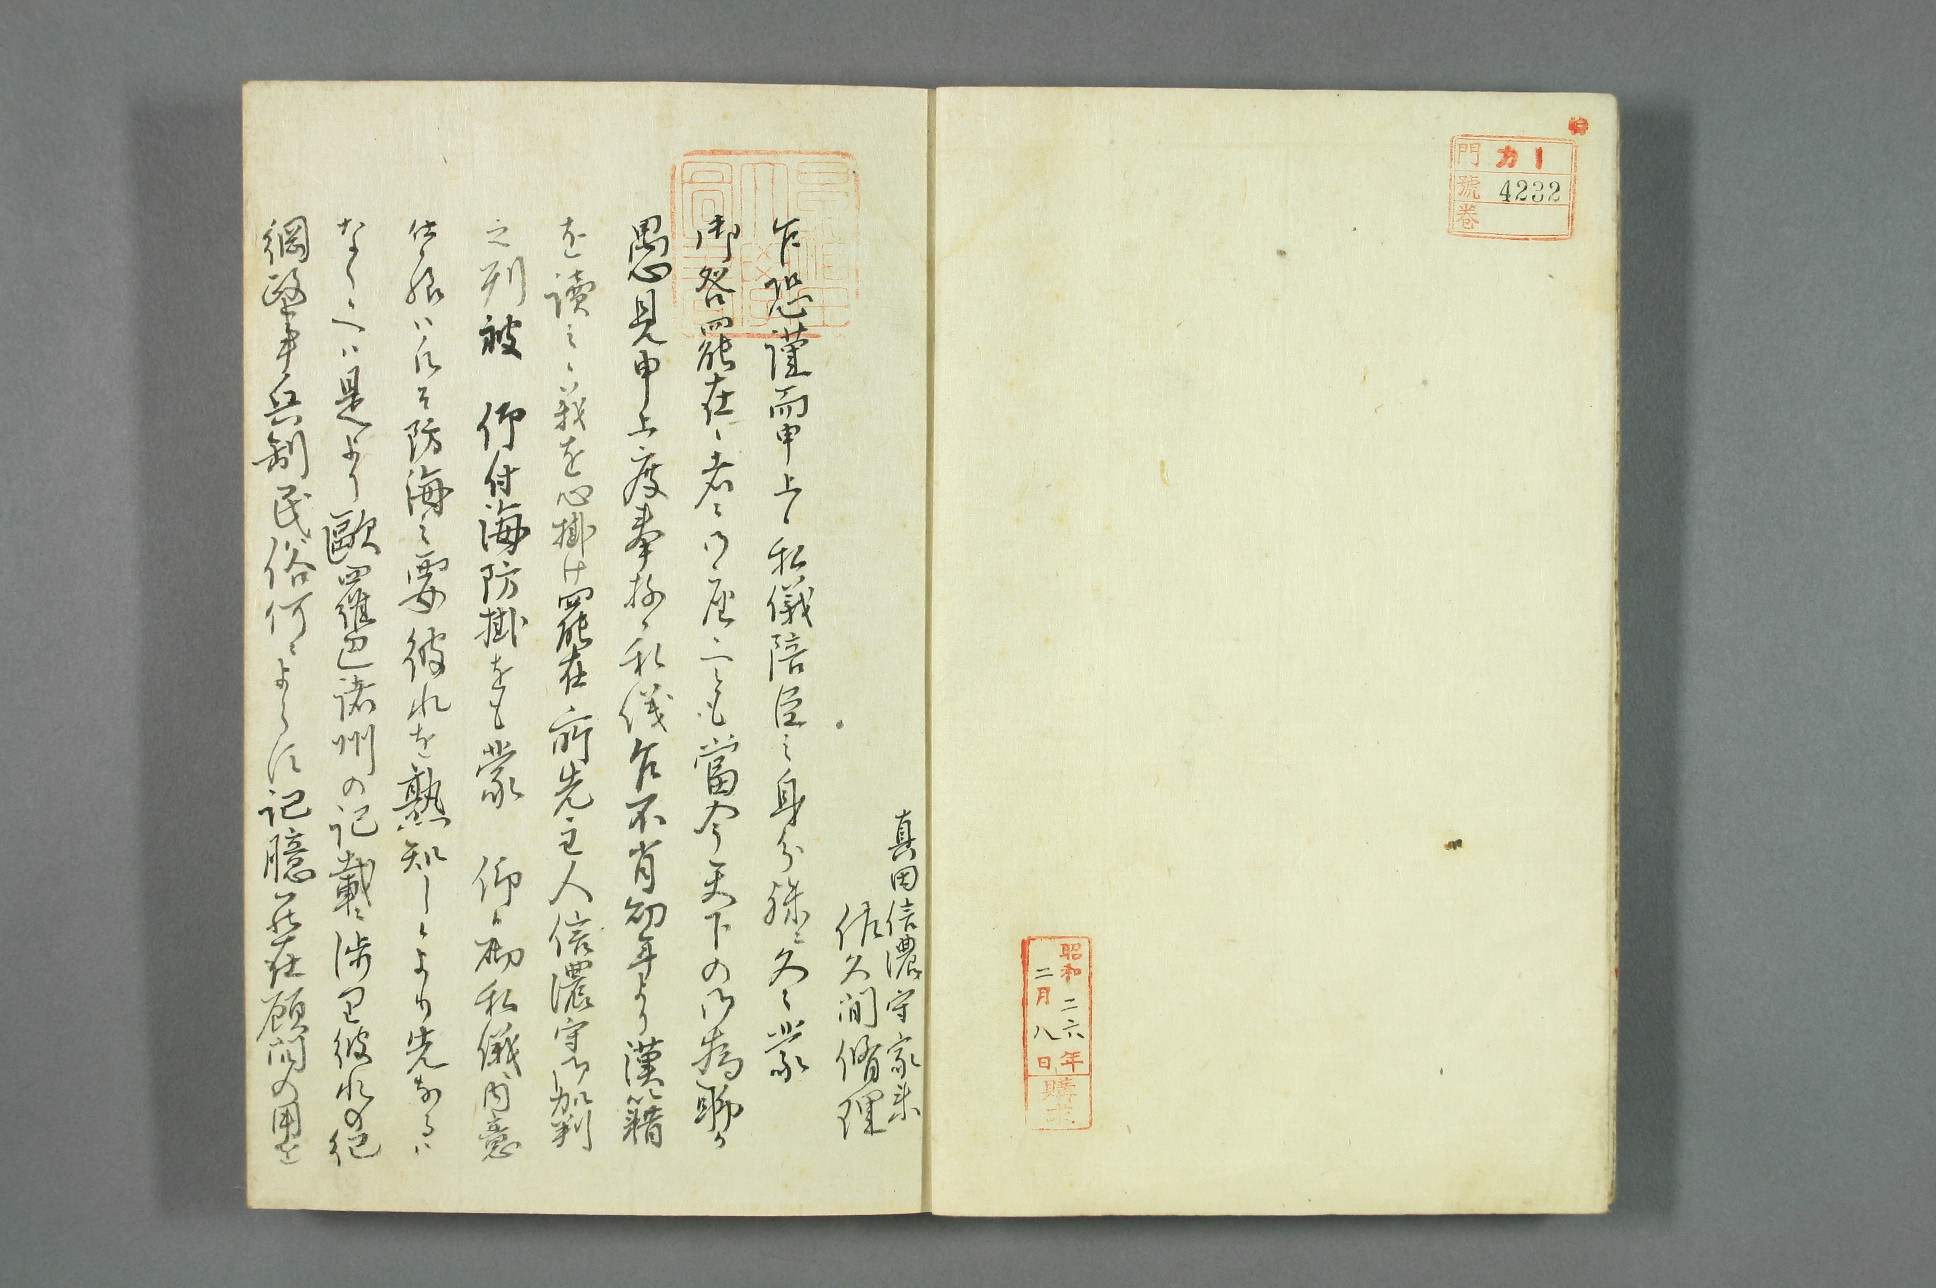 門 カ 1
號 4232
卷
昭和二六年
二月八日
購求
真田信濃守家来
佐久間修理
乍恐謹而申上候私儀陪臣之身分殊ニ久々蒙
御咎罷在候者ニ御座候へとも當今天下の御為聊か
愚見申上度奉存候私儀乍不肖幼年より漢籍
を讀候義を心掛け罷在前先主人信濃守御加判
之列被 仰付海防掛をも蒙 仰候砌私儀内意
仕候は凡そ防海之要彼れを熟知し候より先なるハ
なく候へハ是より歐羅巴諸州の記載ニ渉里彼れの紀
綱政事兵制民俗何ニよらす記臆 罷在顧問の用を